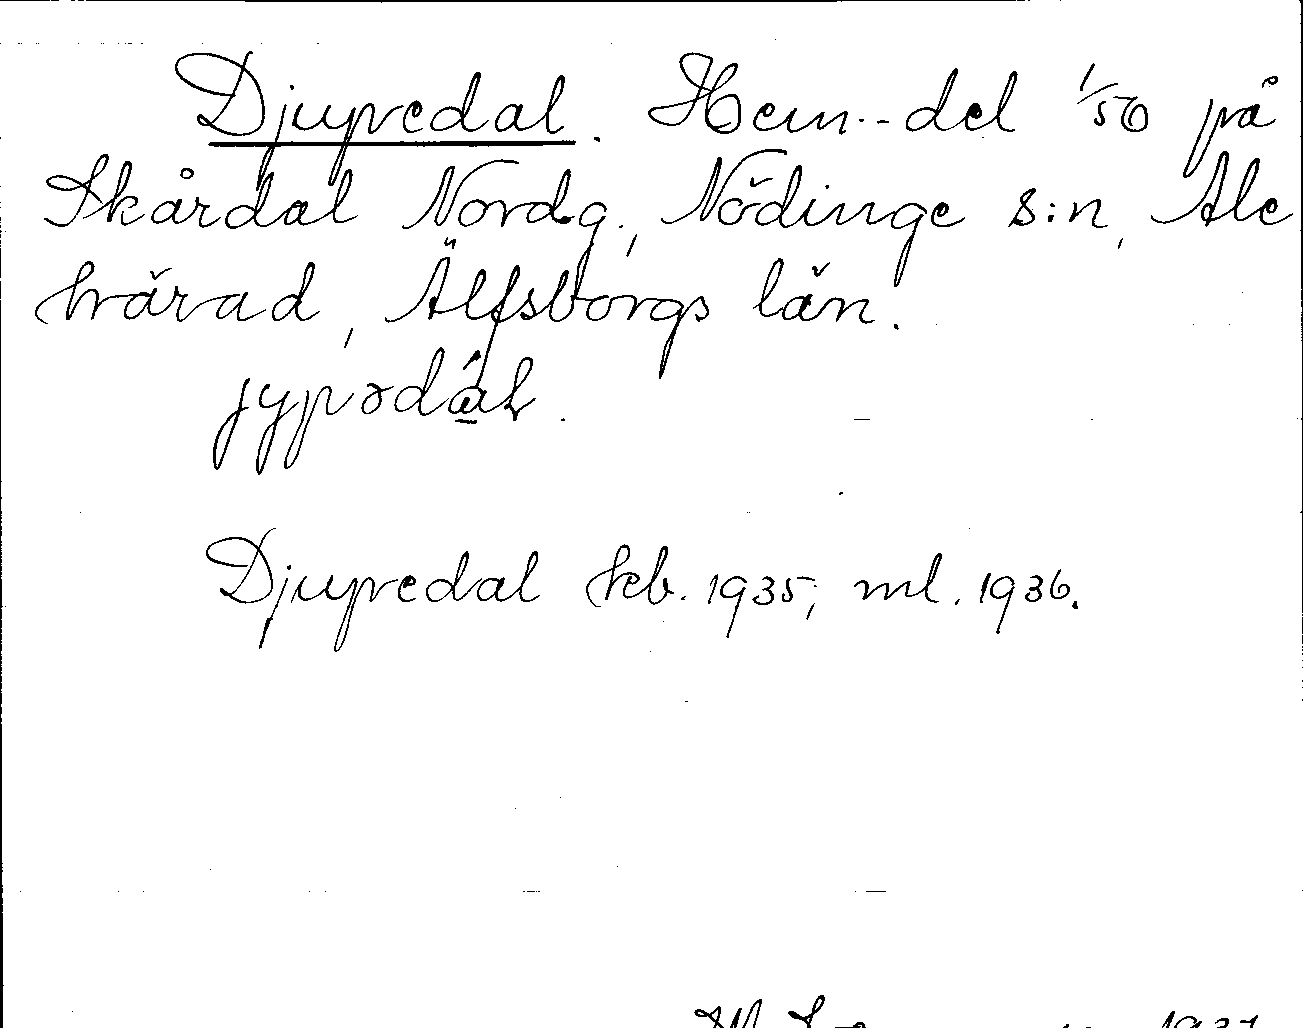 Djupedal. Hem.-del 1/50 på
Skårdal Nordg., Nödinge s:n, Ale
härad, Älfsborgs län.
jypədáɫ.
Djupedal kb. 1935; ml. 1936.
1937